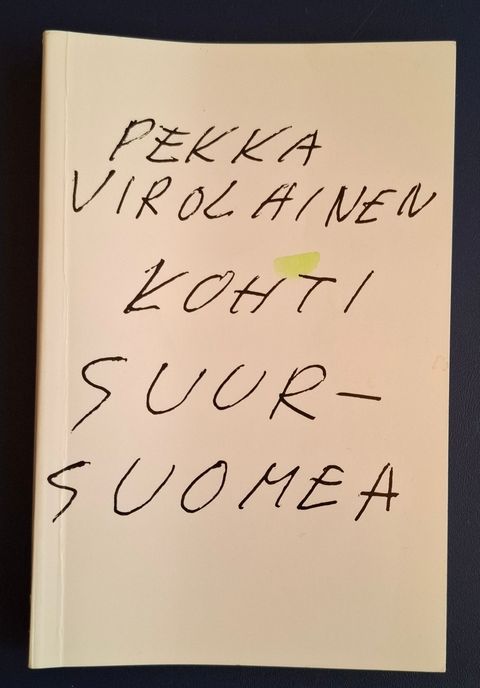 PEKKA
VIROLAINEN
KOHTI
SUUR-
SUOMEA